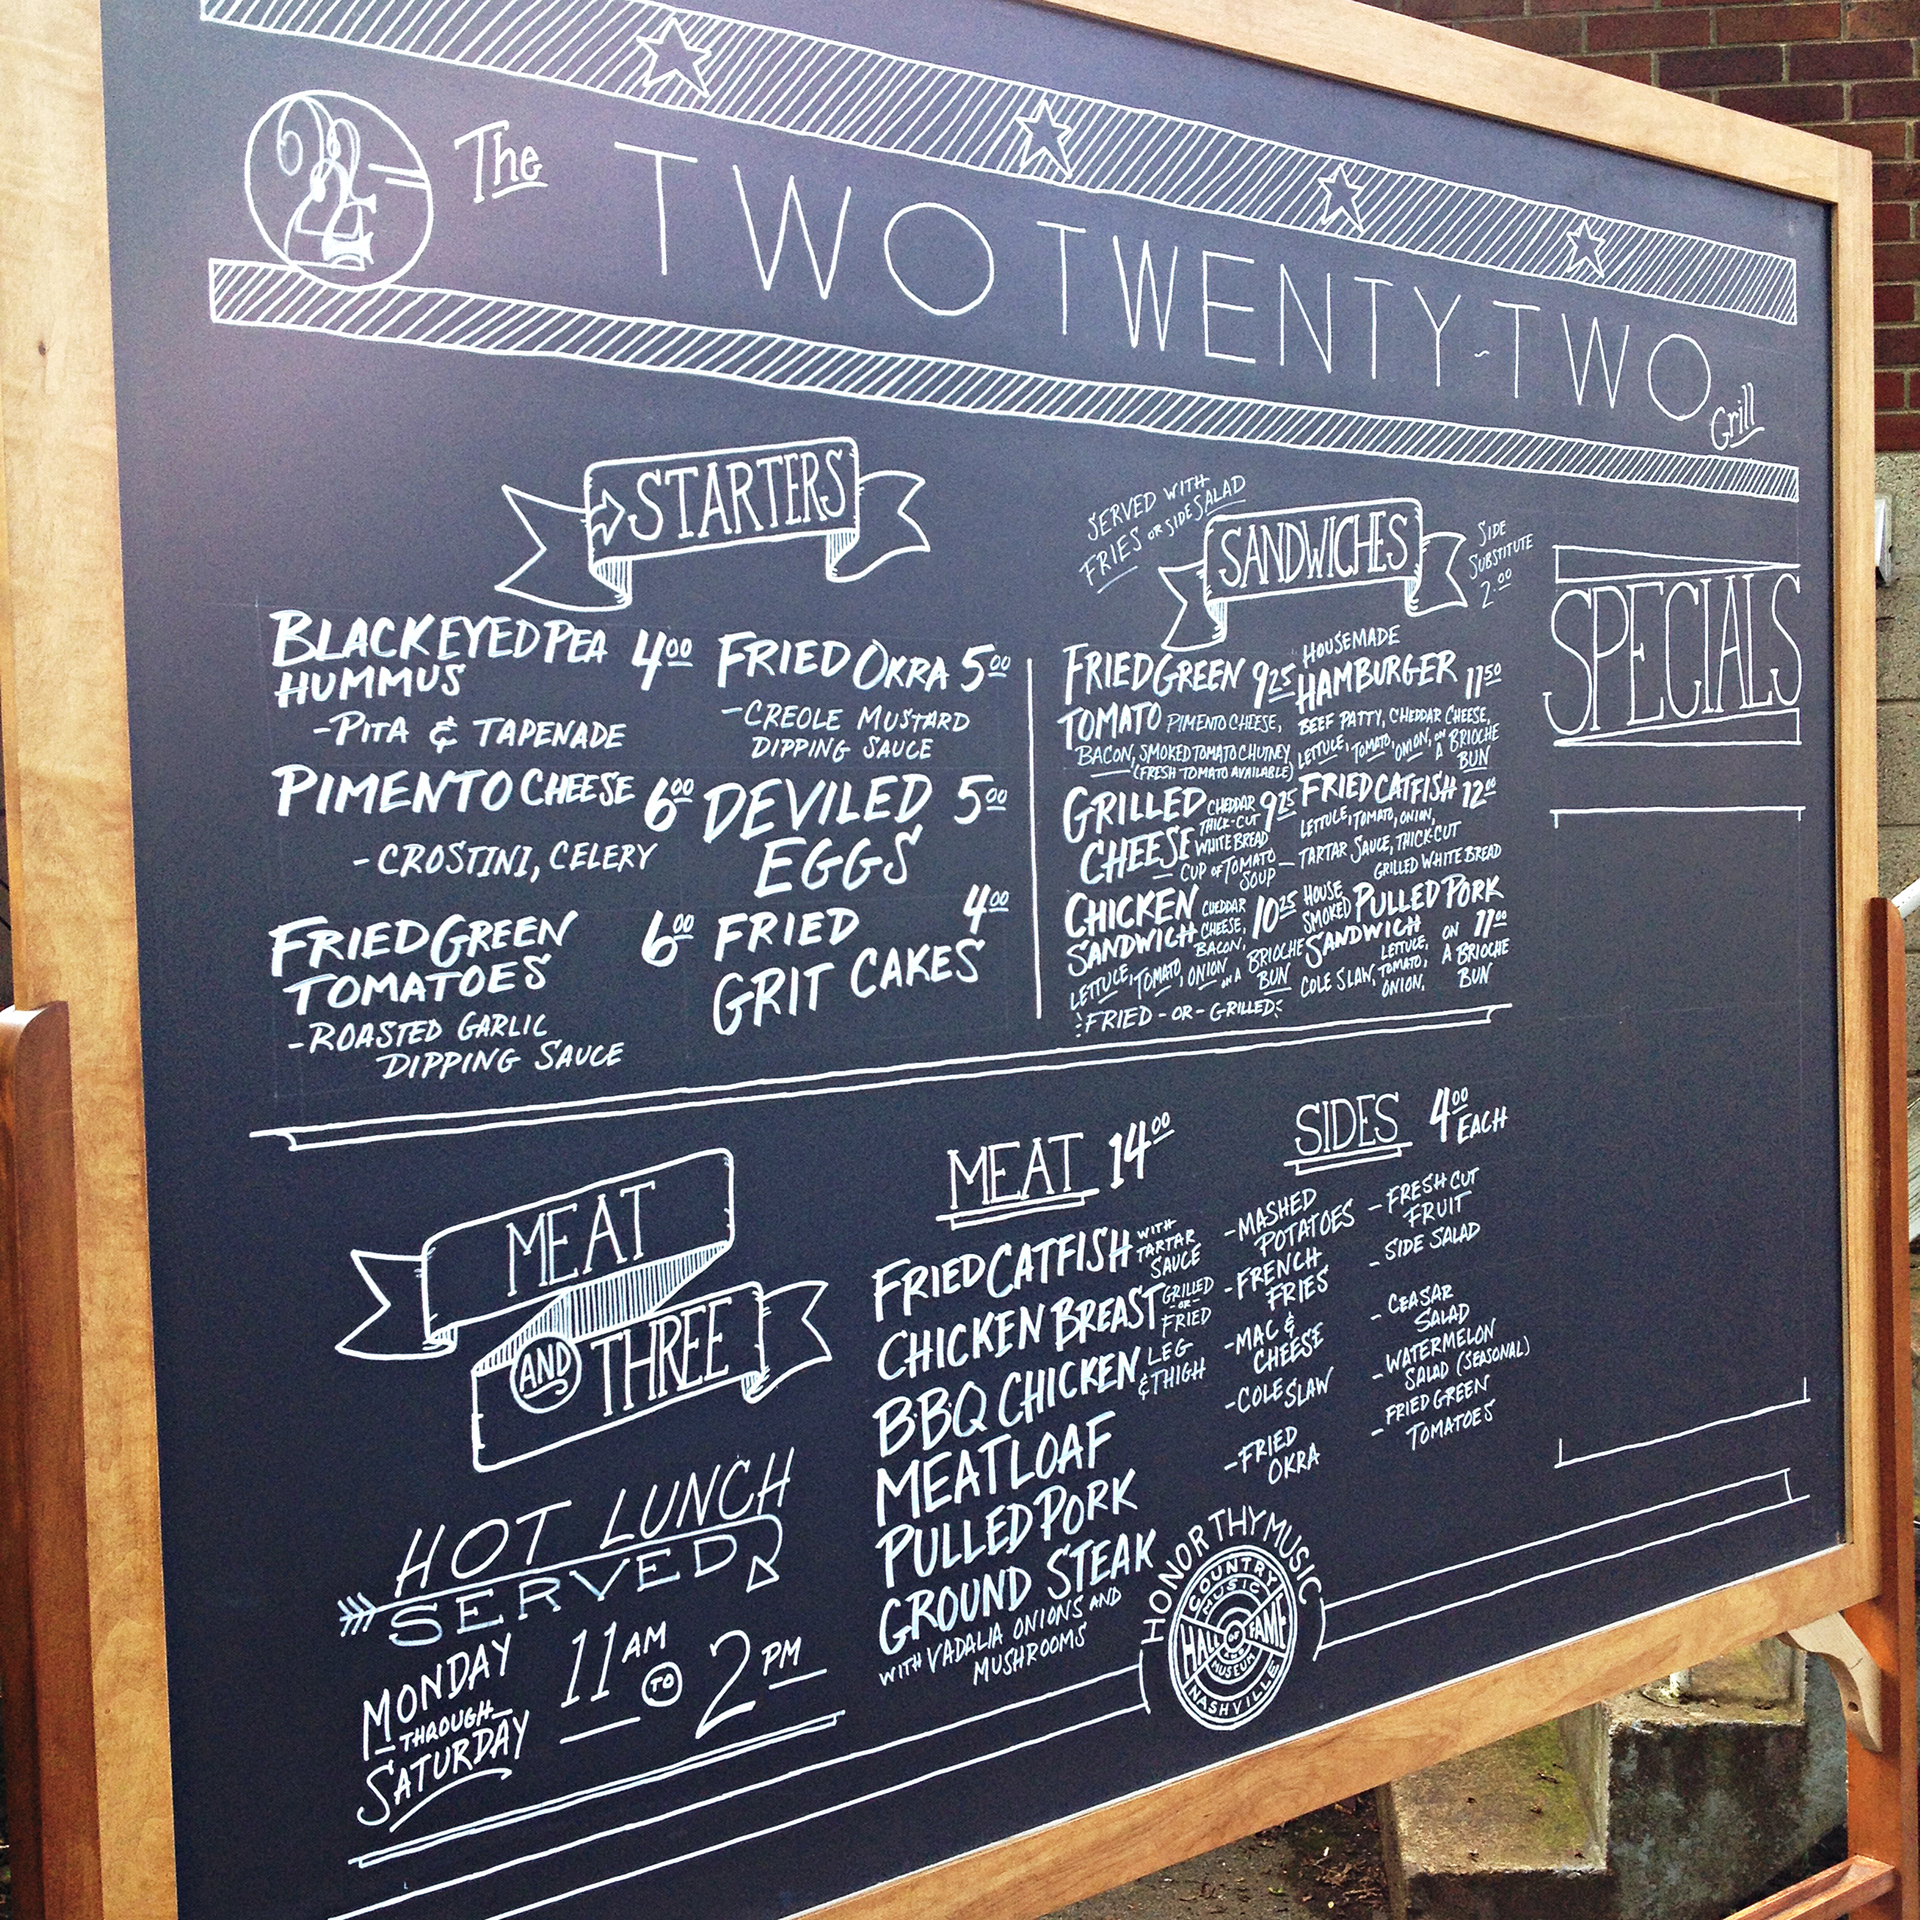 222
The TWO TWENTY-TWO Grill
→STARTERS
BLACKEYED PEA 4.00
HUMMUS
-PITA & TAPENADE
PIMENTO CHEESE 6.00
-CROSTINI, CELERY
FRIED GREEN 6.00
TOMATOES
-ROASTED GARLIC
DIPPING SAUCE
FRIED OKRA 5.00
-CREOLE MUSTARD
DIPPING SAUCE
DEVILED 5.00
EGGS
FRIED 4.00
GRIT CAKES
SERVED WITH
FRIES OR SIDE SALAD
SANDWICHES
SIDE
SUBSTITUTE
2.00
FRIED GREEN 9.25
TOMATO PIMENTO CHEESE,
BACON, SMOKED TOMATO CHUTNEY
(FRESH TOMATO AVAILABLE)
GRILLED CHEDDAR 9.25
CHEESE THICK-CUT
WHITE BREAD
- CUP OF TOMATO
SOUP -
CHICKEN CHEDDAR 10.25
SANDWICH CHEESE,
BACON,
LETTUCE, TOMATO, ONION ON A BRIOCHE
BUN
FRIED -OR- GRILLED
HOUSEMADE
HAMBURGER 11.50
BEEF PATTY, CHEDDAR CHEESE,
LETTUCE, TOMATO, ONION, ON A BRIOCHE
BUN
FRIED CATFISH 12.00
LETTUCE, TOMATO, ONION,
TARTAR SAUCE, THICK-CUT
GRILLED WHITE BREAD
HOUSE
SMOKED PULLED PORK
SANDWICH 11.00
COLE SLAW, LETTUCE,
TOMATO,
ONION,
ON
A BRIOCHE
BUN
SPECIALS
MEAT
AND THREE
HOT LUNCH
SERVED
MONDAY
THROUGH
SATURDAY
11 AM TO 2 PM
MEAT 14.00
FRIED CATFISH WITH
TARTAR
SAUCE
CHICKEN BREAST GRILLED
-OR-
FRIED
BBQ CHICKEN LEG
& THIGH
MEATLOAF
PULLED PORK
GROUND STEAK
WITH VADALIA ONIONS AND
MUSHROOMS
SIDES 4.00
EACH
-MASHED
POTATOES
-FRENCH
FRIES
-MAC &
CHEESE
-COLE SLAW
-FRIED
OKRA
-FRESH CUT
FRUIT
-SIDE SALAD
-CEASAR
SALAD
-WATERMELON
SALAD (SEASONAL)
-FRIED GREEN
TOMATOES
HONOR THY MUSIC
COUNTRY
MUSIC
HALL OF FAME
MUSEUM
NASHVILLE